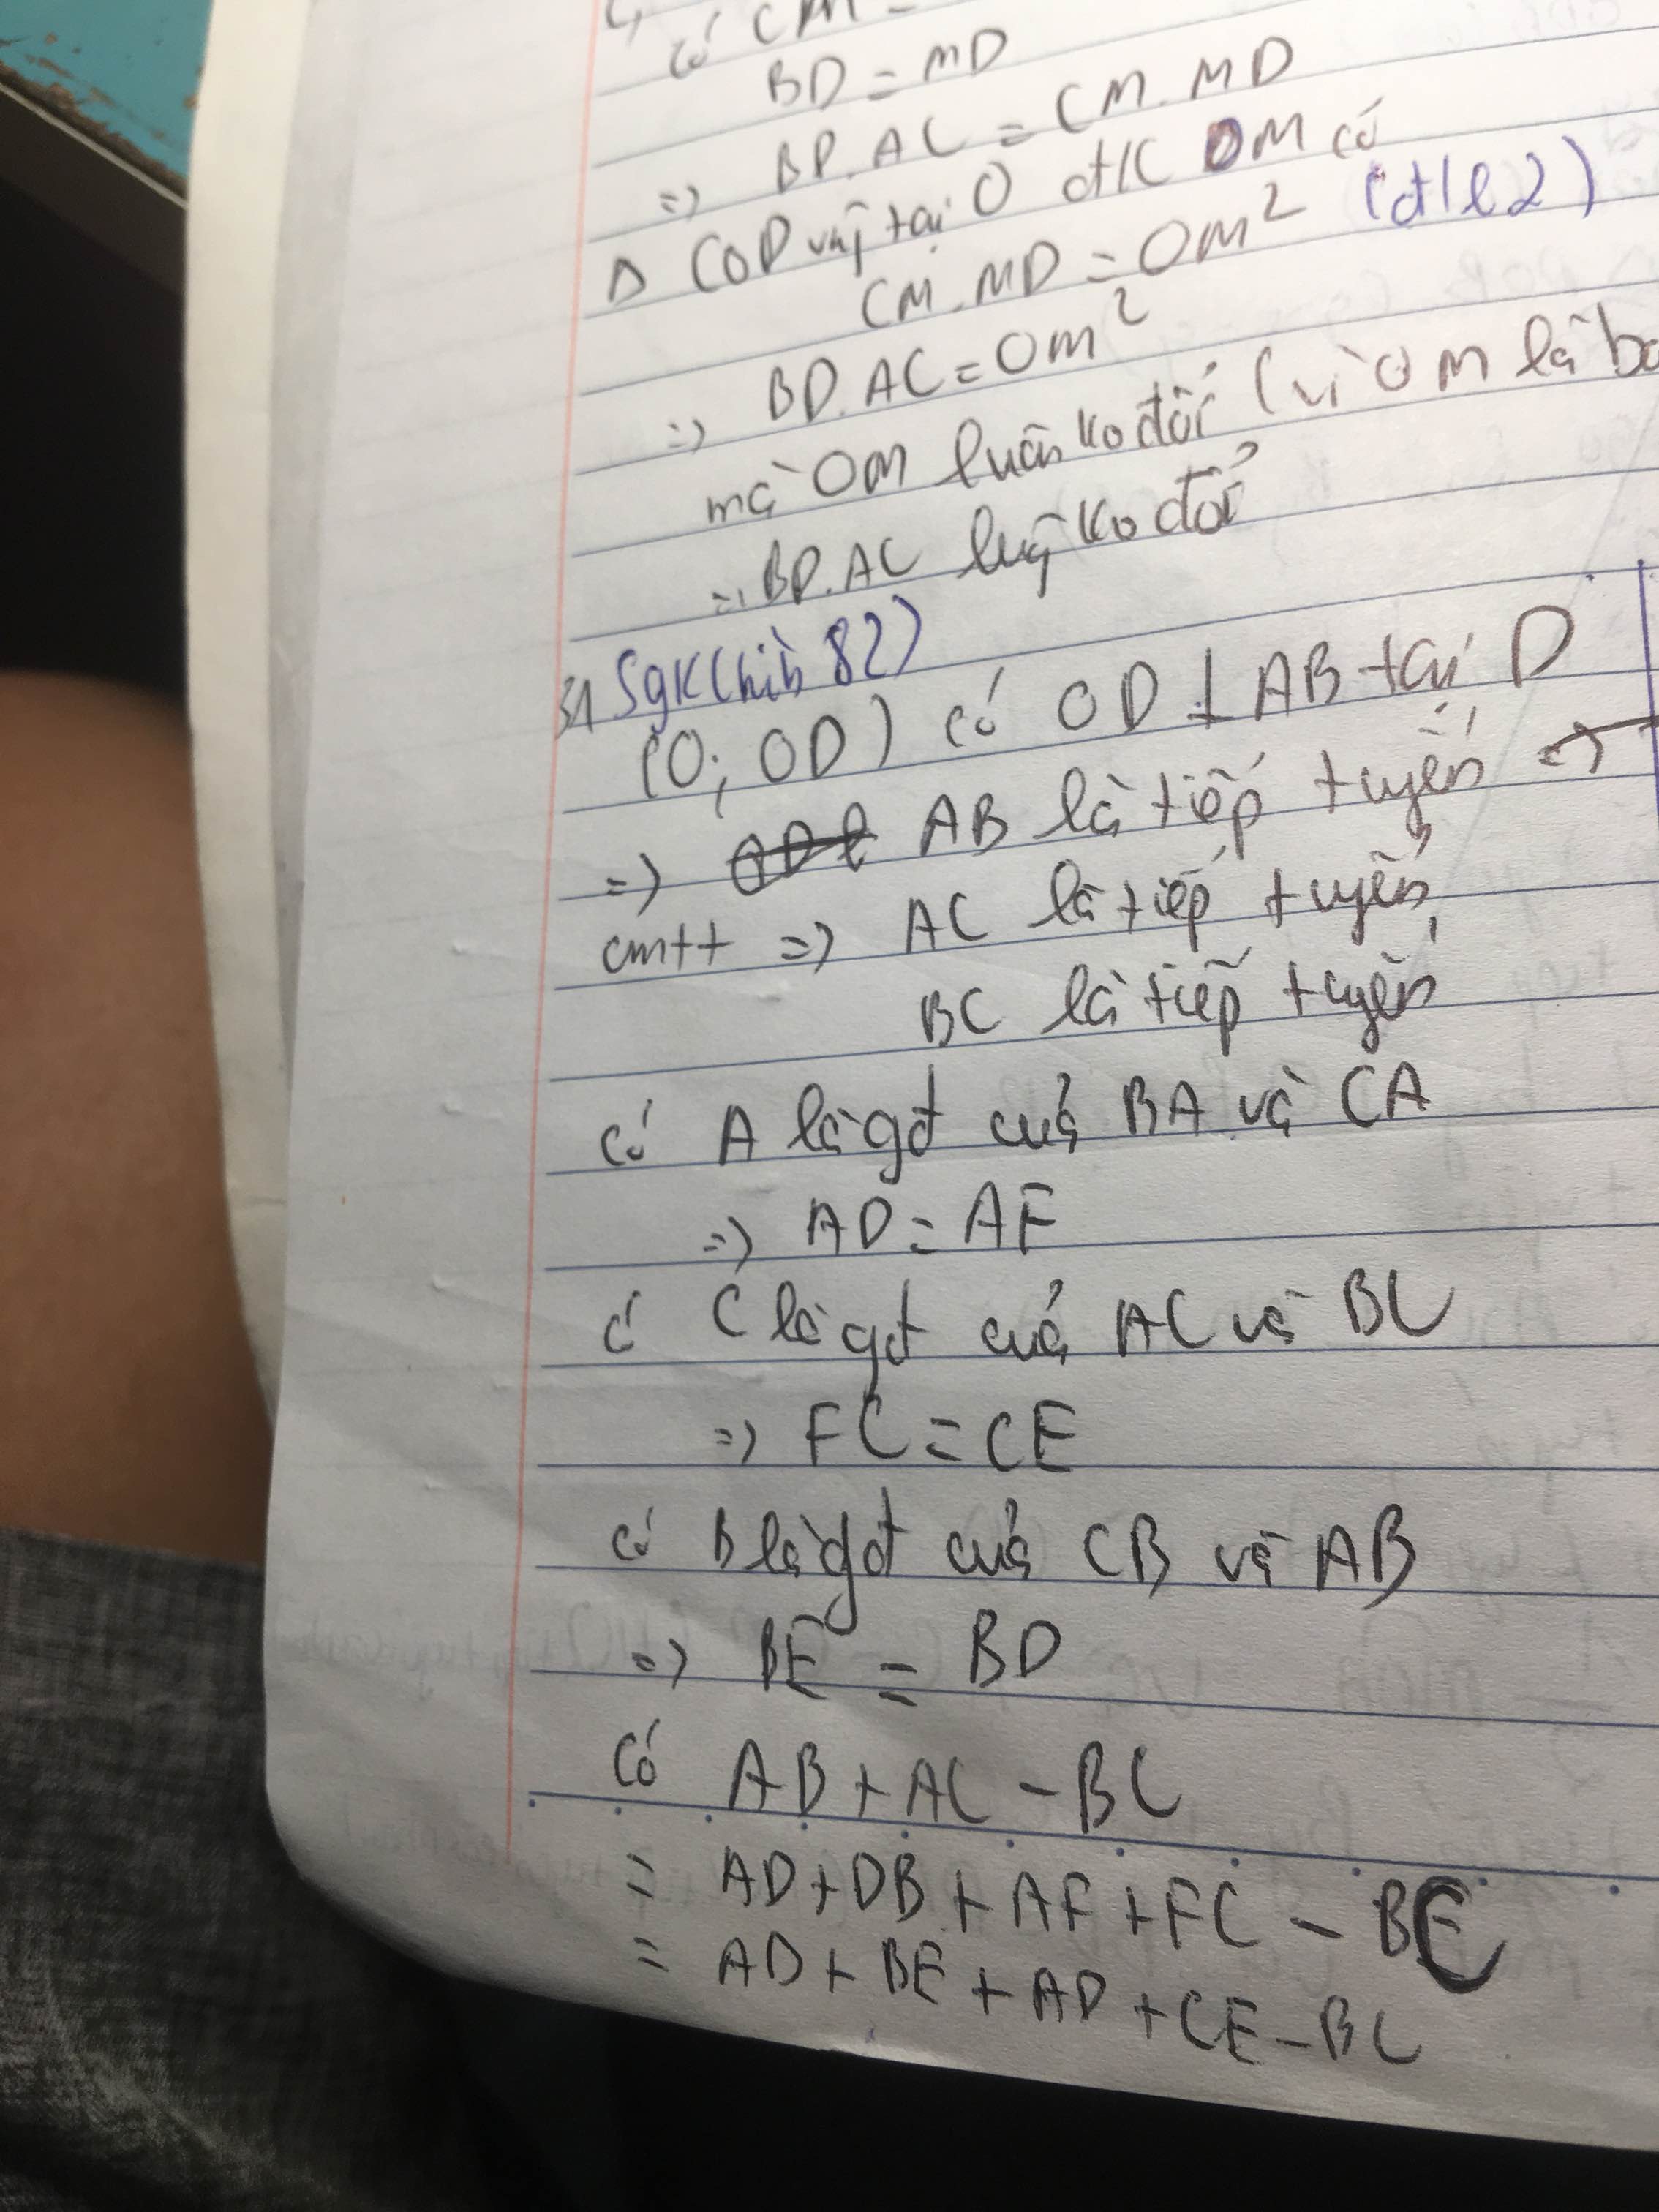 có CM =
BD = MD
=> BD.AC = CM.MD
Δ COD vg tại O đ/c OM có
CM.MD = OM² (đ/l 2)
=> BD.AC = OM²
mà OM luôn ko đổi (vì OM là bá
=> BD.AC luôn ko đổi
31 Sgk (hình 82)
(O; OD) có OD ⊥ AB tại D
=> AB là tiếp tuyến =>
cmtt => AC là tiếp tuyến
BC là tiếp tuyến
có A là gđ của BA và CA
=> AD = AF
có C là gđ của AC và BC
=> FC = CE
có B là gđ của CB và AB
=> BE = BD
Có AB + AC - BC
= AD + DB + AF + FC - BC
= AD + BE + AD + CE - BC